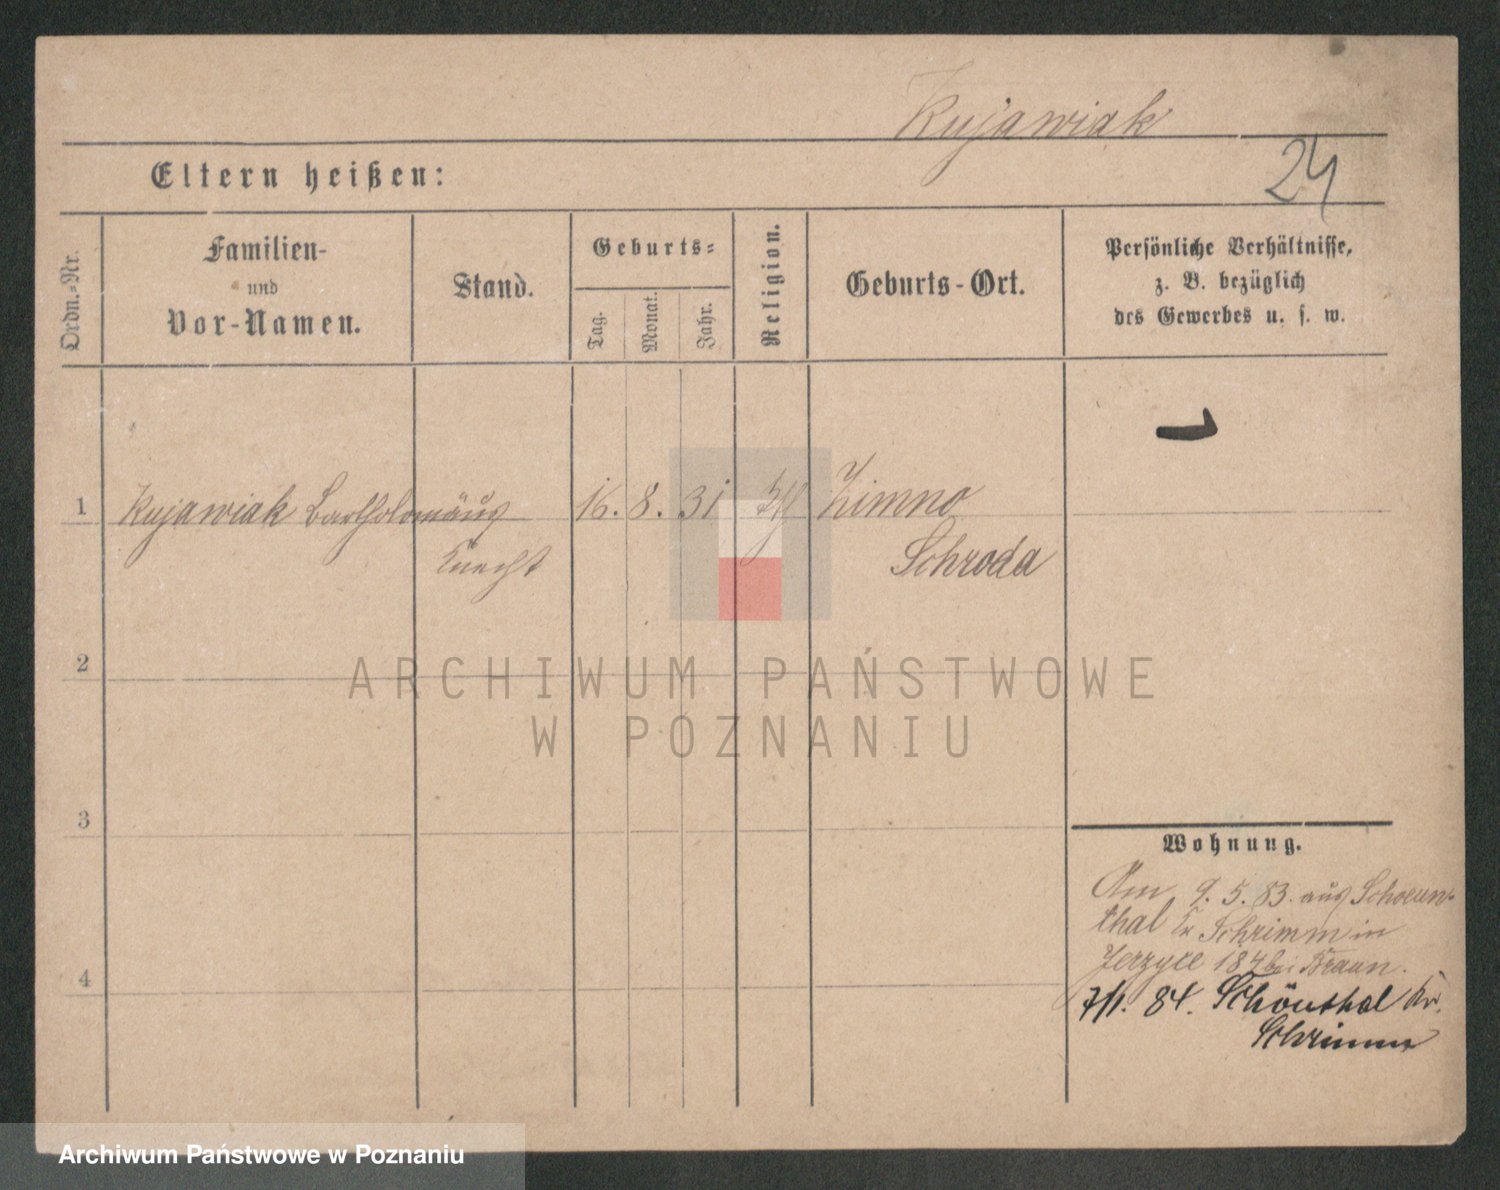 Kujawiak
24
Eltern heißen:
Ordn.-Nr.
Familien-
und
Vor-Namen.
Stand.
Geburts-
Tag.
Monat.
Jahr.
Religion.
Geburts-Ort.
Persönliche Verhältnisse,
z. B. bezüglich
des Gewerbes u. s. w.
1 Kujawiak Bartholomäus 16. 8. 31 Zimno
Knecht Schroda
2
ARCHIWUM PAŃSTWOWE
W POZNANIU
3
Wohnung.
Am 9. 5. 83. aus Schoenn-
thal Kr Schrimm in
Jerzyce 184 bei Braun.
4
7/1. 84. Schönthal Kr.
Schrimm
Archiwum Państwowe w Poznaniu